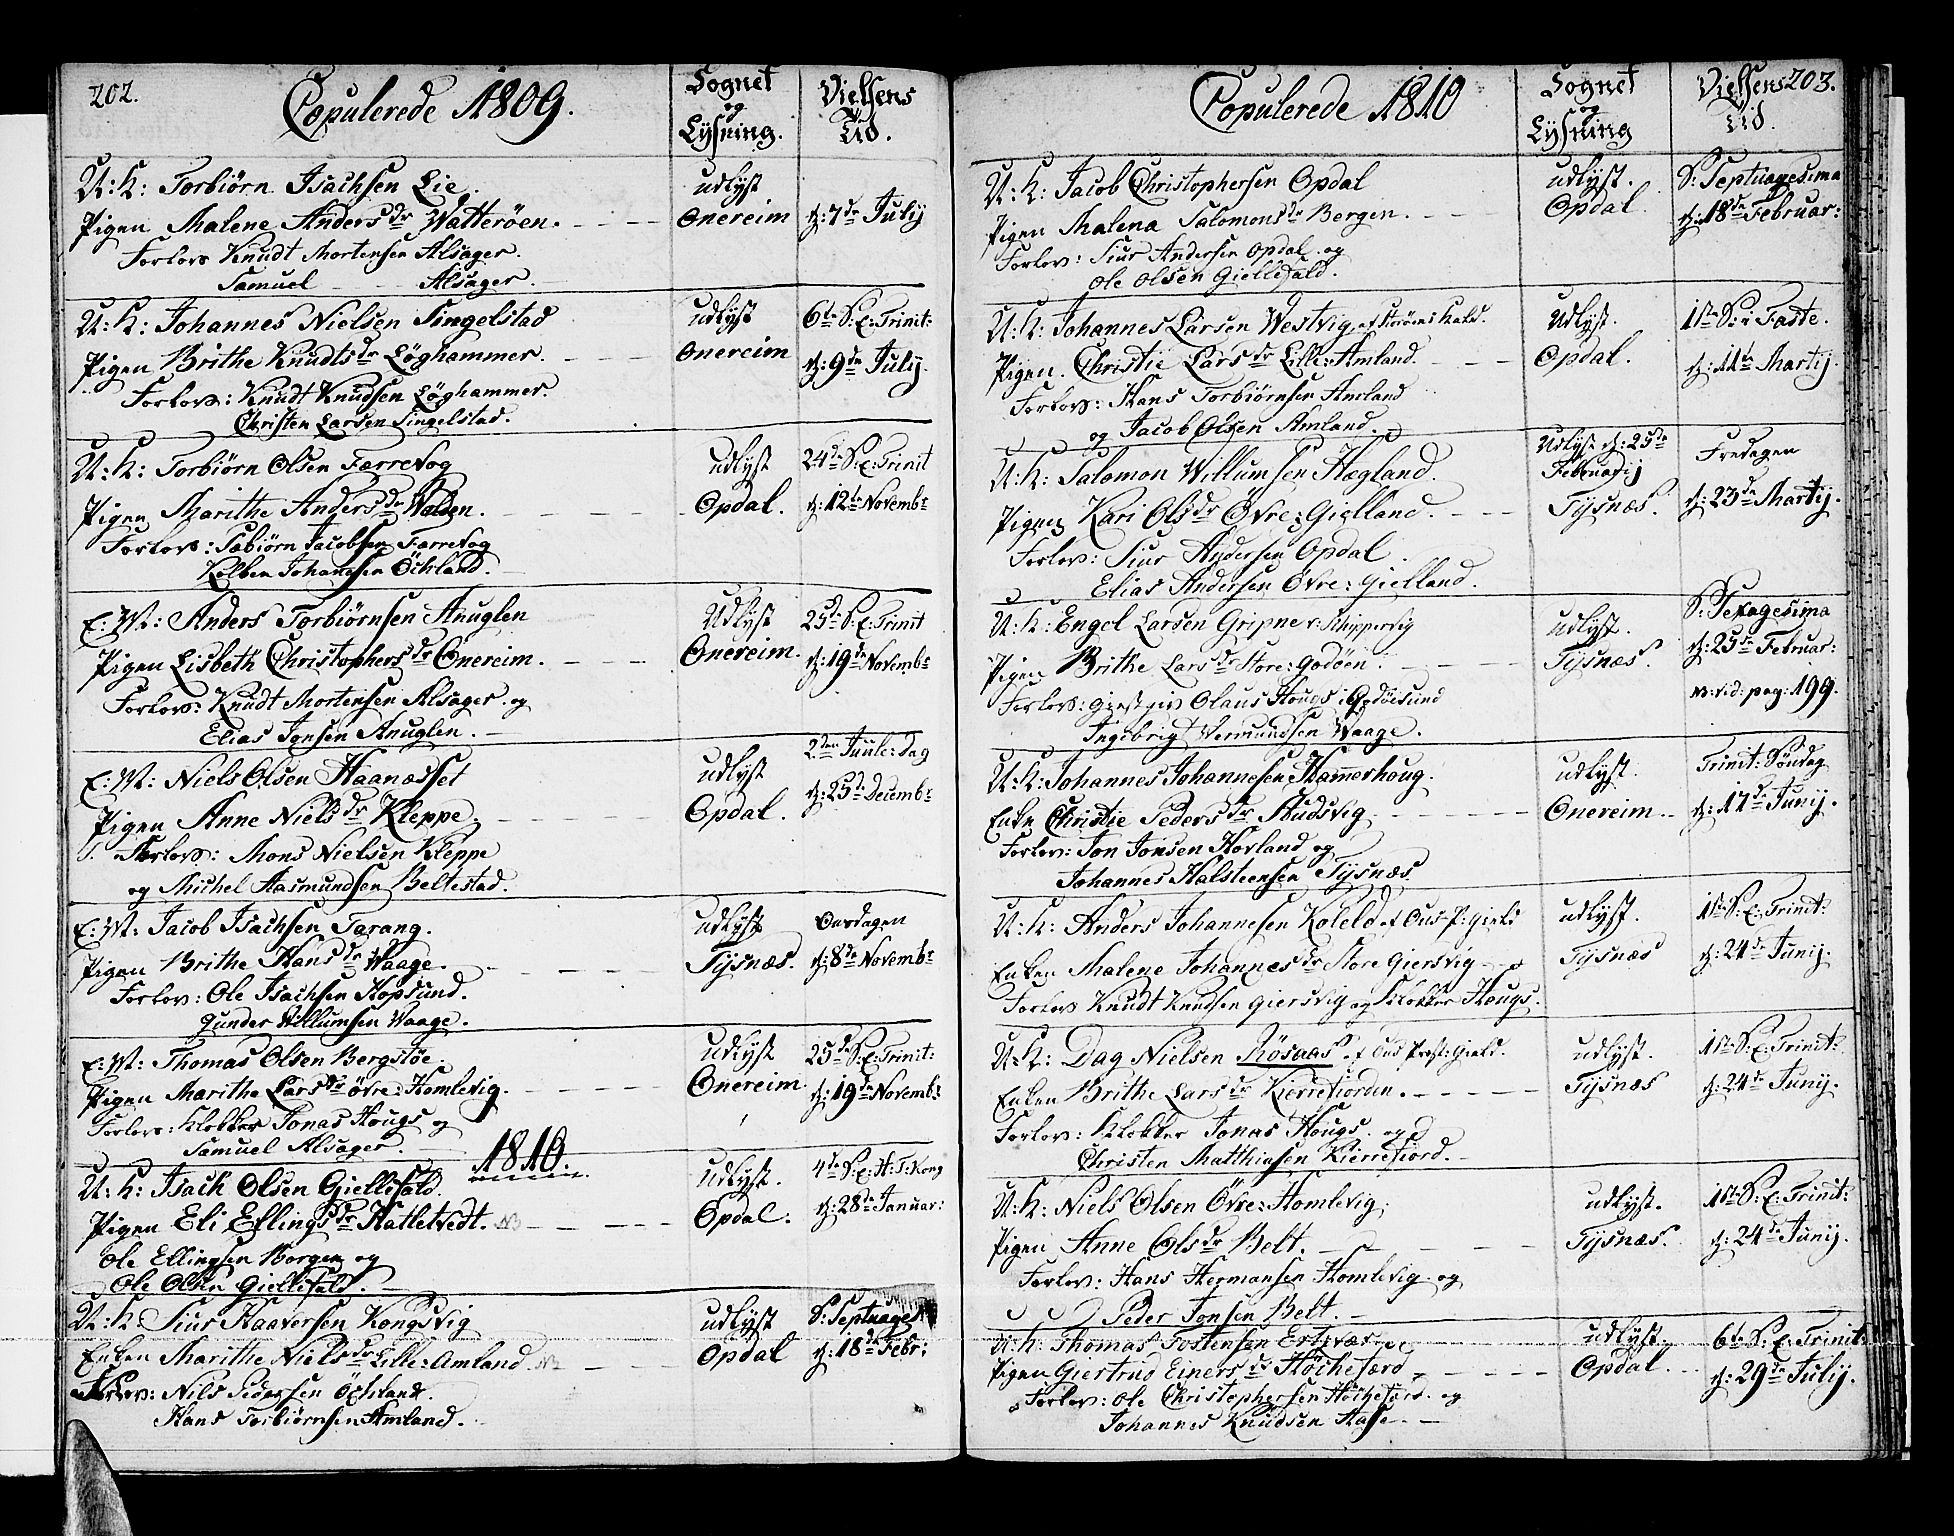 202.
Copulerede 1809.
Sognet
og
Lysning.
Vielsens
Tid.
U: K: Torbiørn Isachsen Lie.
Pigen Malene Andersdr Watterøen.
Forlov: Knudt Mortensen Alsager.
Samuel Alsager.
udlyst
Onereim
d: 7de Julij
U: K: Johannes Nielsen Singelstad
Pigen Brithe Knudtsdr Løghammer.
Forlov: Knudt Knudsen Løghammer.
Christen Larsen Singelstad.
udlyst
Onereim
6te S: E: Trinit:
d: 9de Julij.
U: K: Torbiørn Olsen Færrevog
Pigen Marithe Andersdr Walden.
Forlov: Tæbiørn Jacobsen Færrevog
Kolben Johannesen Öchland.
udlyst
Opdal.
24de S: E: Trinit
d: 12te Novembr
E: M: Anders Torbiørnsen Anuglen
Pigen Lisbeth Christophersdr Onereim.
Forlov: Knudt Mortensen Alsager og
Elias Jonsen Anuglen.
Udlyst
Onereim.
25de S: E: Trinit
d: 19de Novembr
E: M: Niels Olsen Haanæsset
Pigen Anne Nielsdr Kleppe.
Forlov: Mons Nielsen Kleppe
og Michel Aasmundsen Beltestad.
udlyst
Opdal.
2den Juule-Dag
d: 25de Decembr
E: M: Jacob Isachsen Tarang.
Pigen Brithe Hansdr Waage.
Forlov: Ole Isachsen Hopsund.
Gunder Willumsen Waage.
udlyst
Tysnæs.
Onsdagen
d: 8de Novembr
E: M: Thomas Olsen Bergstøe.
Pigen Marithe Larsdtr øvre: Homlevig.
Forlov: Klokker Jonas Hougs og
Samuel Alsager.
udlyst
Onereim.
25de S: E: Trinit:
d: 19de Novembr
1810.
U: K: Isach Olsen Giellefald.
Pigen Eli Ellingsdr Hatletvedt. NB
Ole Ellingsen Borgen og
Ole Olsen Giellefald.
udlyst.
Opdal.
4de S: E: H: 3: Kong
d: 28de Januar:
U: K Siur Haaversen Kongsvig
Enken Marithe Nielsdr Lille: Amland NB
Forlov: Nils Pedersen Öchland.
Hans Torbiørnsen Amland.
udlyst
Opdal
S: Septuages
d: 18de Febr:
Copulerede 1810
Sognet
og
Lysning
Vielsens
Tid.
203.
U: K: Jacob Christophersen Opdal
Pigen Malena Salomonsdr Bergen.
Forlov: Siur Andersen Opdal og
Ole Olsen Giellefald.
udlyst.
Opdal.
S: Septuagesima
d: 18de Februar:
U: K: Johannes Larsen Westvig af Strøms Kald.
Pigen. Christie Larsdr Lille: Amland.
Forlov: Hans Torbiørnsen Amland
og Jacob Olsen Amland.
Udlyst.
Opdal.
1ste S: i Faste.
d: 11te Martij.
U: K: Salomon Willumsen Hægland.
Pigen Kari Olsdr Övre: Gielland.
Forlov: Siur Andersen Opdal.
Elias Andersen Övre: Gielland.
Udlyst d: 25de
Februarij
Tysnæs.
Fredagen
d: 23de Martij.
U: K: Engel Larsen Gripne v: Skippervig
Pigen Brithe Larsdr Store: Godøen.
Forlov: Giestgiv: Olaus Hougs i Godøesund
Ingebrigt Vermundsen Waage.
udlyst.
Tysnæs.
S: Sexagesima
d: 25de Februar:
NB: vid: pag: 199.
U: K: Johannes Johannesen Hammerhoug.
Enke Christie Pedersdr Audsvig
Forlov: Jon Jonsen Hovland og
Johannes Halsteensen Tysnæs.
udlyst.
Onereim.
Trinit: Søndag
d: 17de Junij.
U: K: Anders Johannesen Koleld af Ous P: Gield
Enken Malene Johannesdr Store Giersvig
Forlov Knudt Knudsen Giersvig og Klokker Hougs.
udlyst.
Tysnæs
1ste S: E: Trinit:
d: 24de Junij.
U: K: Dag Nielsen Røsaas af Ous Præst: Gield.
Enken Brithe Larsdr Kierrefiorden.
Forlov: Klokker Jonas Hougs og
Christen Matthiasen Kierrefiord.
udlyst.
Tysnæs
1ste S: E: Trinit:
d: 24de Junij.
U: K: Niels Olsen Övre: Homlevig.
Pigen Anne Olsdr Belt.
Forlov: Hans Hermansen Homlevig og
Peder Jonsen Belt.
udlyst.
Tysnæs.
1ste S: E: Trinit:
d: 24de Junij.
U: K: Thomas Tostensen Ertzvær
Pigen Giertrud Einersdr Høchefærd
Forlov: Ole Christophersen Høchefærd og
Johannes Knudsen Aasse.
udlyst.
Opdal.
6te S: E: Trinit:
d: 29de Julij.